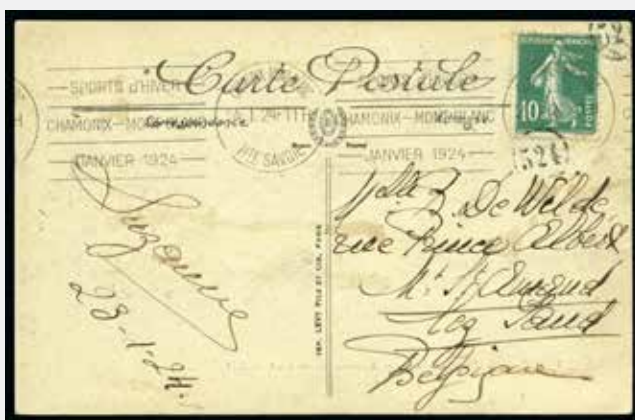 Carte Postale
SPORTS D'HIVER
CHAMONIX-MONT-BLANC
JANVIER 1924
Correspondance
1.24-11H
HTE SAVOIE
CHAMONIX-MONT-BLANC
JANVIER 1924
10
POSTES
(524)
Suzanne
23-1-24.
IMP. LÉVY FILS ET CIE, PARIS
Mlle De Wilde
rue Prince Albert
Mt St Amand
lez Gand
Belgique